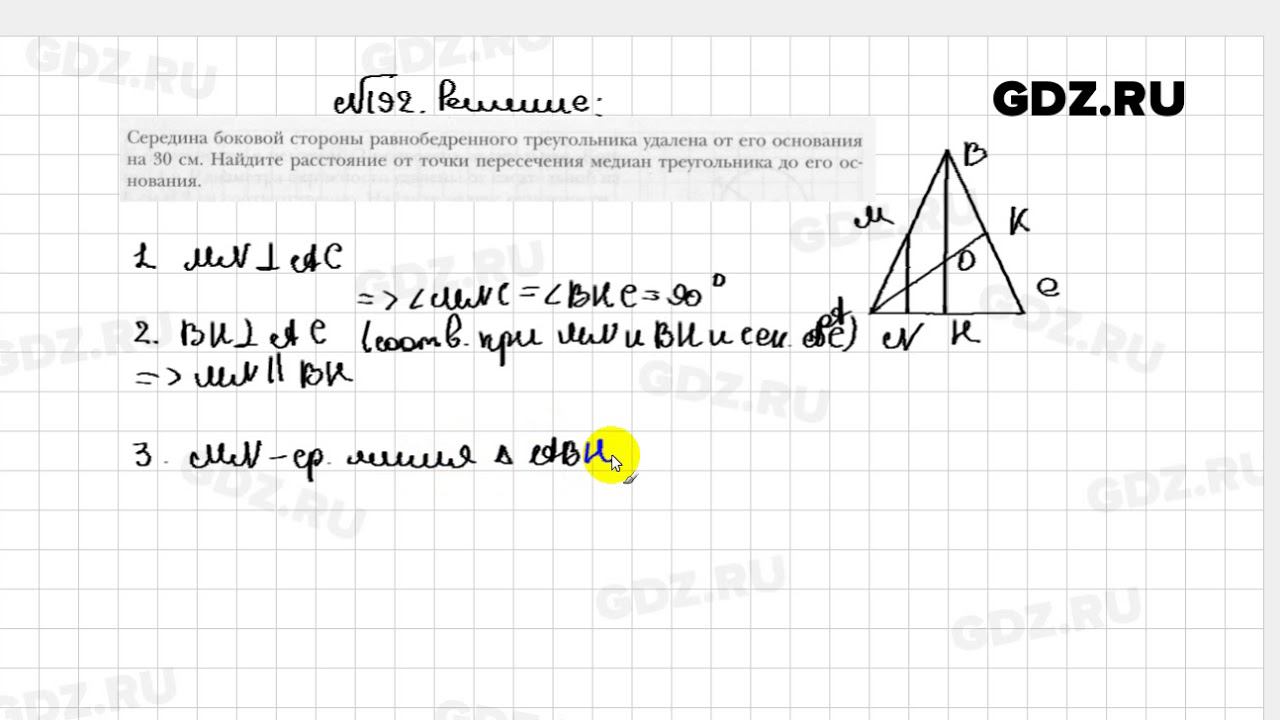 GDZ.RU
№192. Решение:
GDZ.RU
Середина боковой стороны равнобедренного треугольника удалена от его основания
на 30 см. Найдите расстояние от точки пересечения медиан треугольника до его ос-
нования.
B
M
K
O
C
A
N
H
1. MN ⊥ AC
=> ∠MNC = ∠BHC = 90°
2. BH ⊥ AC (соотв. при MN и BH и сек. AC)
=> MN || BH
3. MN – ср. линия Δ ABH
GDZ.RU
GDZ.RU
GDZ.RU
GDZ.RU
GDZ.RU
GDZ.RU
GDZ.RU
GDZ.RU
GDZ.RU
GDZ.RU
GDZ.RU
GDZ.RU